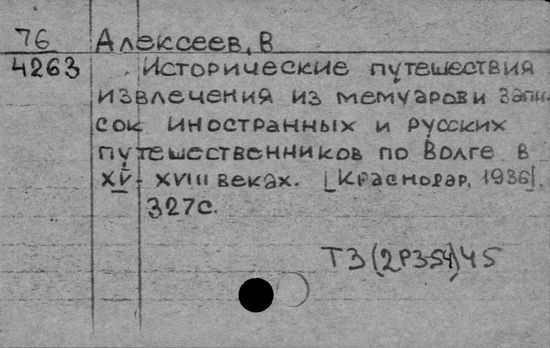 76 Алексеев, В
4263 Исторические путешествия
извлечения из мемуаров и запи-
сок иностранных и русских
путешественников по Волге в
XV- XVIII веках. [Краснодар, 1936].
327с.
Т3(2Р354)45